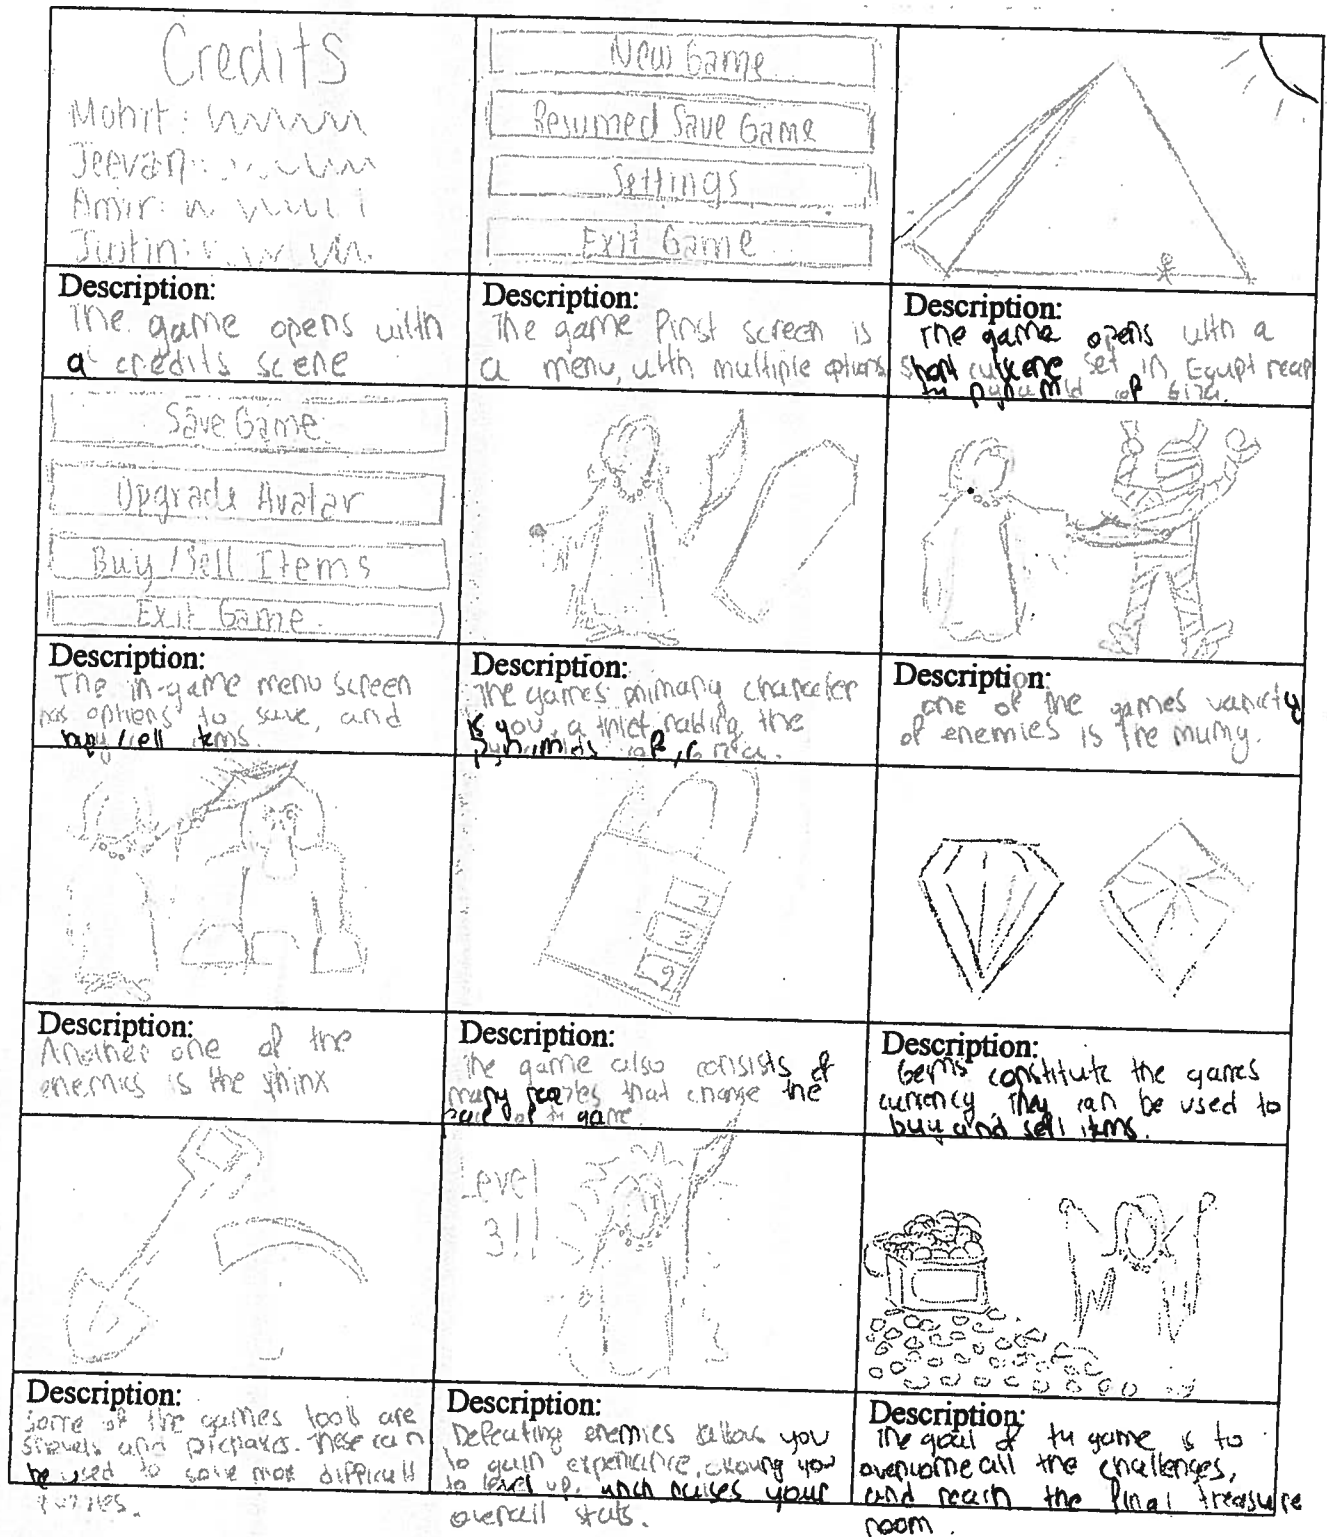 Credits
Mohit:
Jeevan:
Amir:
Justin:
New Game
Resumed Save Game
Settings
Exit Game
Description:
The game opens with
a credits scene
Description:
The game first screen is
a menu, with multiple options
Description:
The game opens with a
short cutscene set in Egypt near
th pyramid of Giza.
Save Game
Upgrade Avatar
Buy/Sell Items
Exit Game
Description:
The in-game menu screen
has options to save, and
buy/sell items.
Description:
The games primary character
is you, a thief raiding the
pyramids of Giza.
Description:
one of the games variety
of enemies is the mumy.
Description:
Another one of the
enemies is the sphinx
Description:
The game also consists of
many puzzles that change the
of th game.
Description:
Gems constitute the games
currency. They can be used to
buy and sell items.
Level
3!!
Description:
Some of the games tools are
shovels and pickaxes. These can
be used to solve most difficult
puzzles.
Description:
Defeating enemies allows you
to gain experiance, allowing you
to level up, which raises your
overall stats.
Description:
The goal of th game is to
overcome all the challenges,
and reach the final treasure
room.